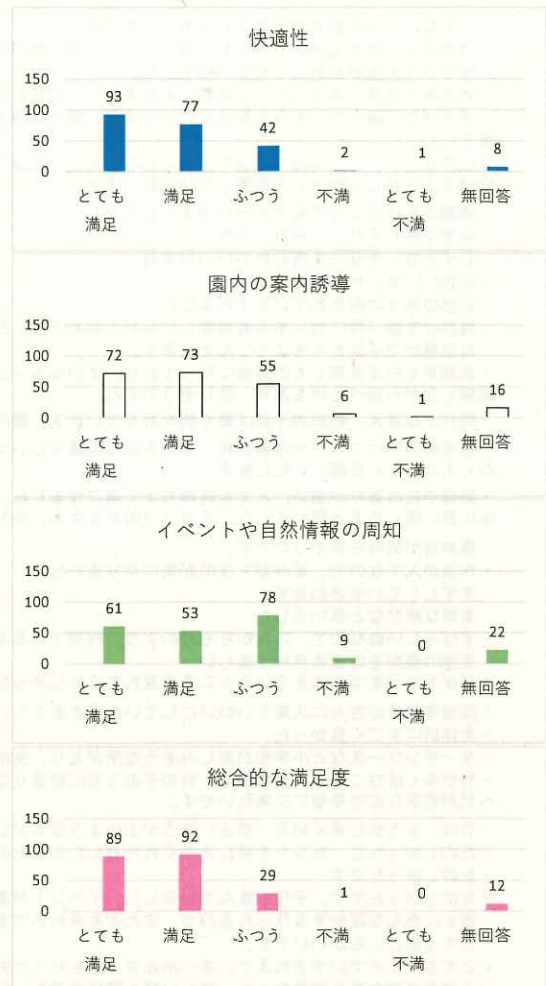 快適性
150
100
50
0
93
77
42
2
1
8
とても
満足
満足
ふつう
不満
とても
不満
無回答
園内の案内誘導
150
100
50
0
72
73
55
6
1
16
とても
満足
満足
ふつう
不満
とても
不満
無回答
イベントや自然情報の周知
150
100
50
0
61
53
78
9
0
22
とても
満足
満足
ふつう
不満
とても
不満
無回答
総合的な満足度
150
100
50
0
89
92
29
1
0
12
とても
満足
満足
ふつう
不満
とても
不満
無回答